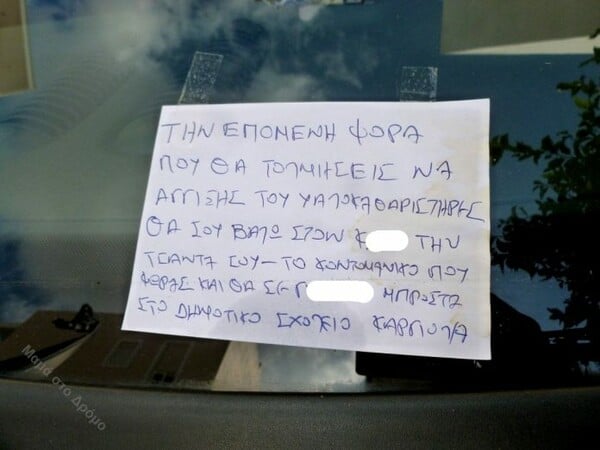 ΤΗΝ ΕΠΟΜΕΝΗ ΦΟΡΑ
ΠΟΥ ΘΑ ΤΟΛΜΗΣΕΙΣ ΝΑ
ΑΓΓΙΣΗΣ ΤΟΥ ΥΑΛΟΚΑΘΑΡΙΣΤΗΡΕΣ
ΘΑ ΣΟΥ ΒΑΛΩ ΣΤΟΝ Κ ΤΗΝ
ΤΣΑΝΤΑ ΣΟΥ - ΤΟ ΚΟΝΤΟΜΑΝΙΚΟ ΠΟΥ
ΦΟΡΑΣ ΚΑΙ ΘΑ ΣΕ Γ ΜΠΡΟΣΤΑ
ΣΤΟ ΔΗΜΟΤΙΚΟ ΣΧΟΛΕΙΟ ΚΑΡΓΙΟΛΑ
Ματιά στο Δρόμο